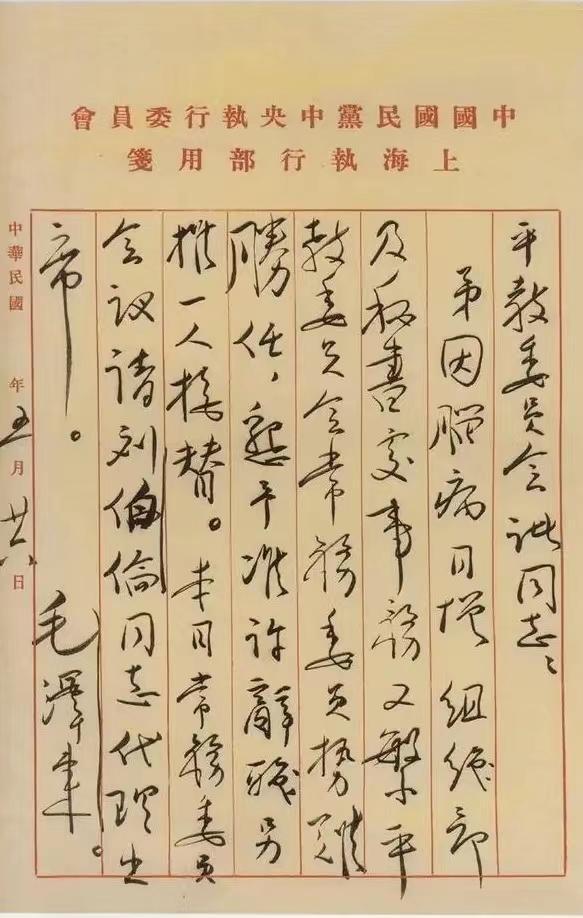 中國國民黨中央執行委員會
上海執行部用箋
平教委員会諸同志：
弟因腦病日增組織部
及秘書處事務又繁平
教委員会常務委員势难
勝任，懇予准許辭職另
推一人接替。本日常務委員
会议请刘伯倫同志代理出
席。
毛澤東。
中華民國 年五月廿六日